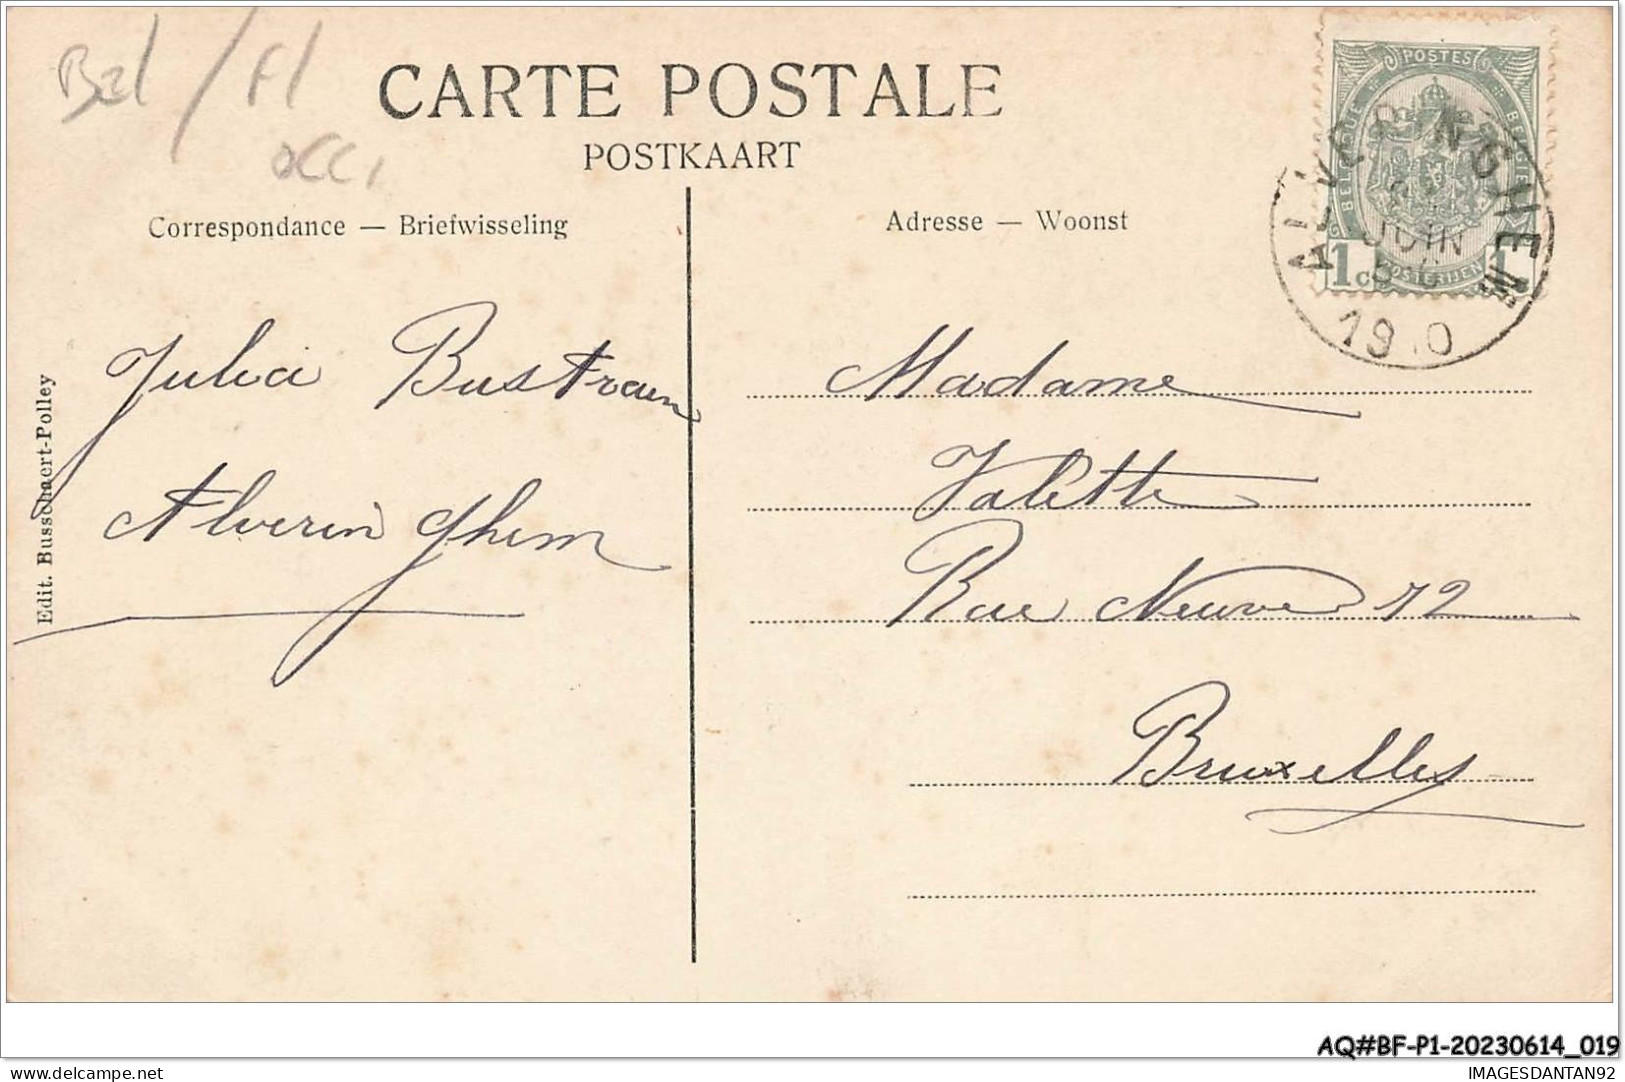 Bel / Fl
occ,
CARTE POSTALE
POSTKAART
Correspondance — Briefwisseling
Adresse — Woonst
POSTES
BELGIQUE BELGIE
1c POSTERIJEN 1
ALVERINGHEM
JUIN
1910
Julia Bustraen
Alveringhem
Edit. Busschaert-Polley
Madame
Valette
Rue Neuve 72
Bruxelles
AQ#BF-P1-20230614_019
IMAGESDANTAN92